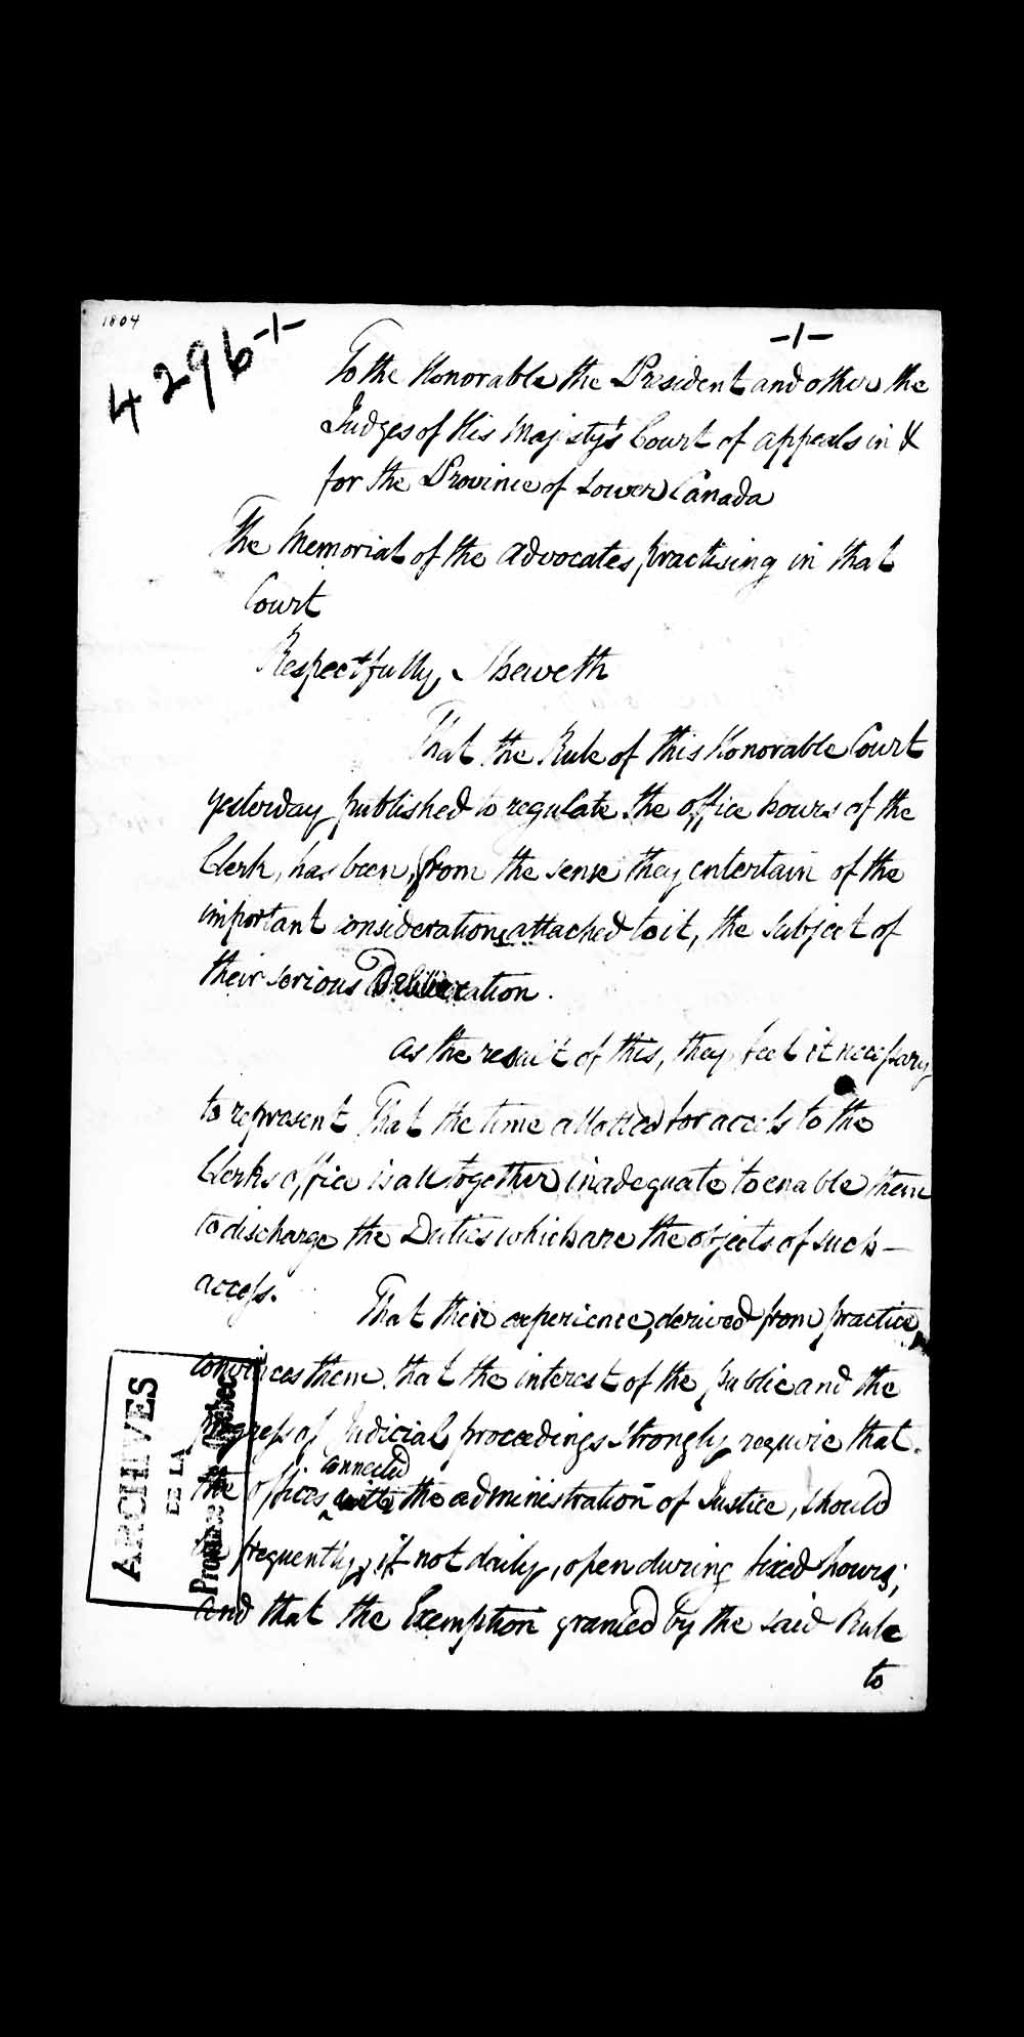 1804
4296-1-
-1-
To the Honorable the President and other the
Judges of His Majesty's Court of appeals in &
for the Province of Lower Canada
The Memorial of the advocates practising in that
Court
Respectfully, Sheweth
That the Rule of this Honorable Court
yesterday published to regulate the office hours of the
Clerk, has been, from the sense they entertain of the
important considerations attached to it, the subject of
their serious Deliberation.
as the result of this, they feel it necessary
to represent That the time allotted for access to the
Clerks office is altogether inadequate to enable them
to discharge the Duties which are the objects of such –
access.
That their experience, derived from practice,
convinces them, that the interest of the public and the
Progress of Judicial proceedings strongly require that
connected
the offices with the administration of Justice, should
be frequently, if not daily, open during fixed hours;
and that the Exemption granted by the said Rule
to
ARCHIVES
DE LA
Province de Québec